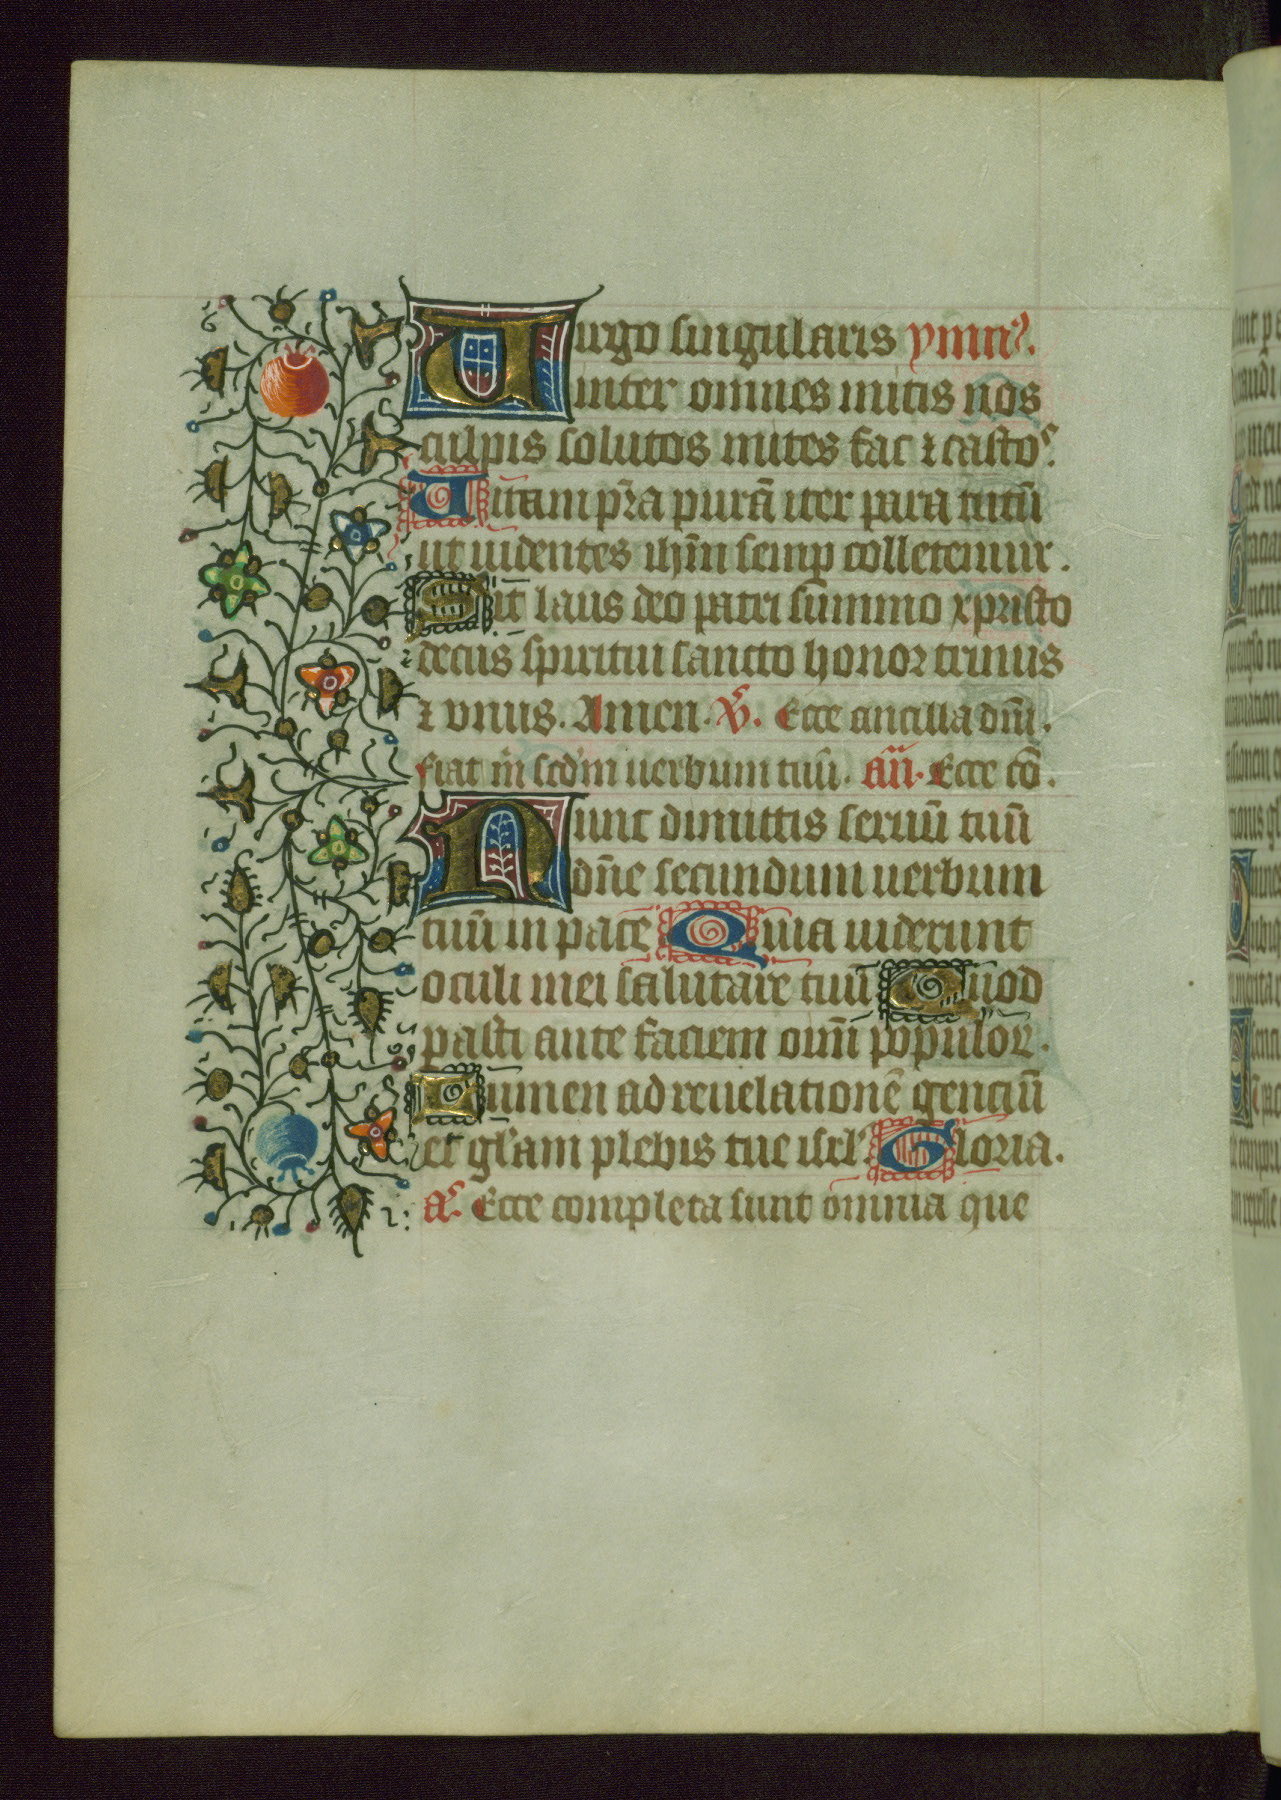 Uirgo singularis ymnꝰ.
inter omnes mitis nos
culpis solutos mites fac ⁊ castoˢ.
Uitam p̄sta purā iter para tutū
ut uidentes ihm̄ semꝑ colletemur.
Sit laus deo patri summo xpristo
decus spiritui sancto honor trinus
⁊ vnus. Amen. v̊. Ecce ancilla dn̄i.
fiat m̄ scd'm uerbum tuū. an̄. Ecce cō.
Nunc dimittis seruū tuū
dn̄e secundum uerbum
tuū in pace Quia uiderunt
oculi mei salutare tuū Quod
pasti ante faciem om̄ populoꝛ.
Lumen ad reuelationē gentiū
et gl'am plebis tue isrl' Gloria.
aˢ. Ecce completa sunt omnia que